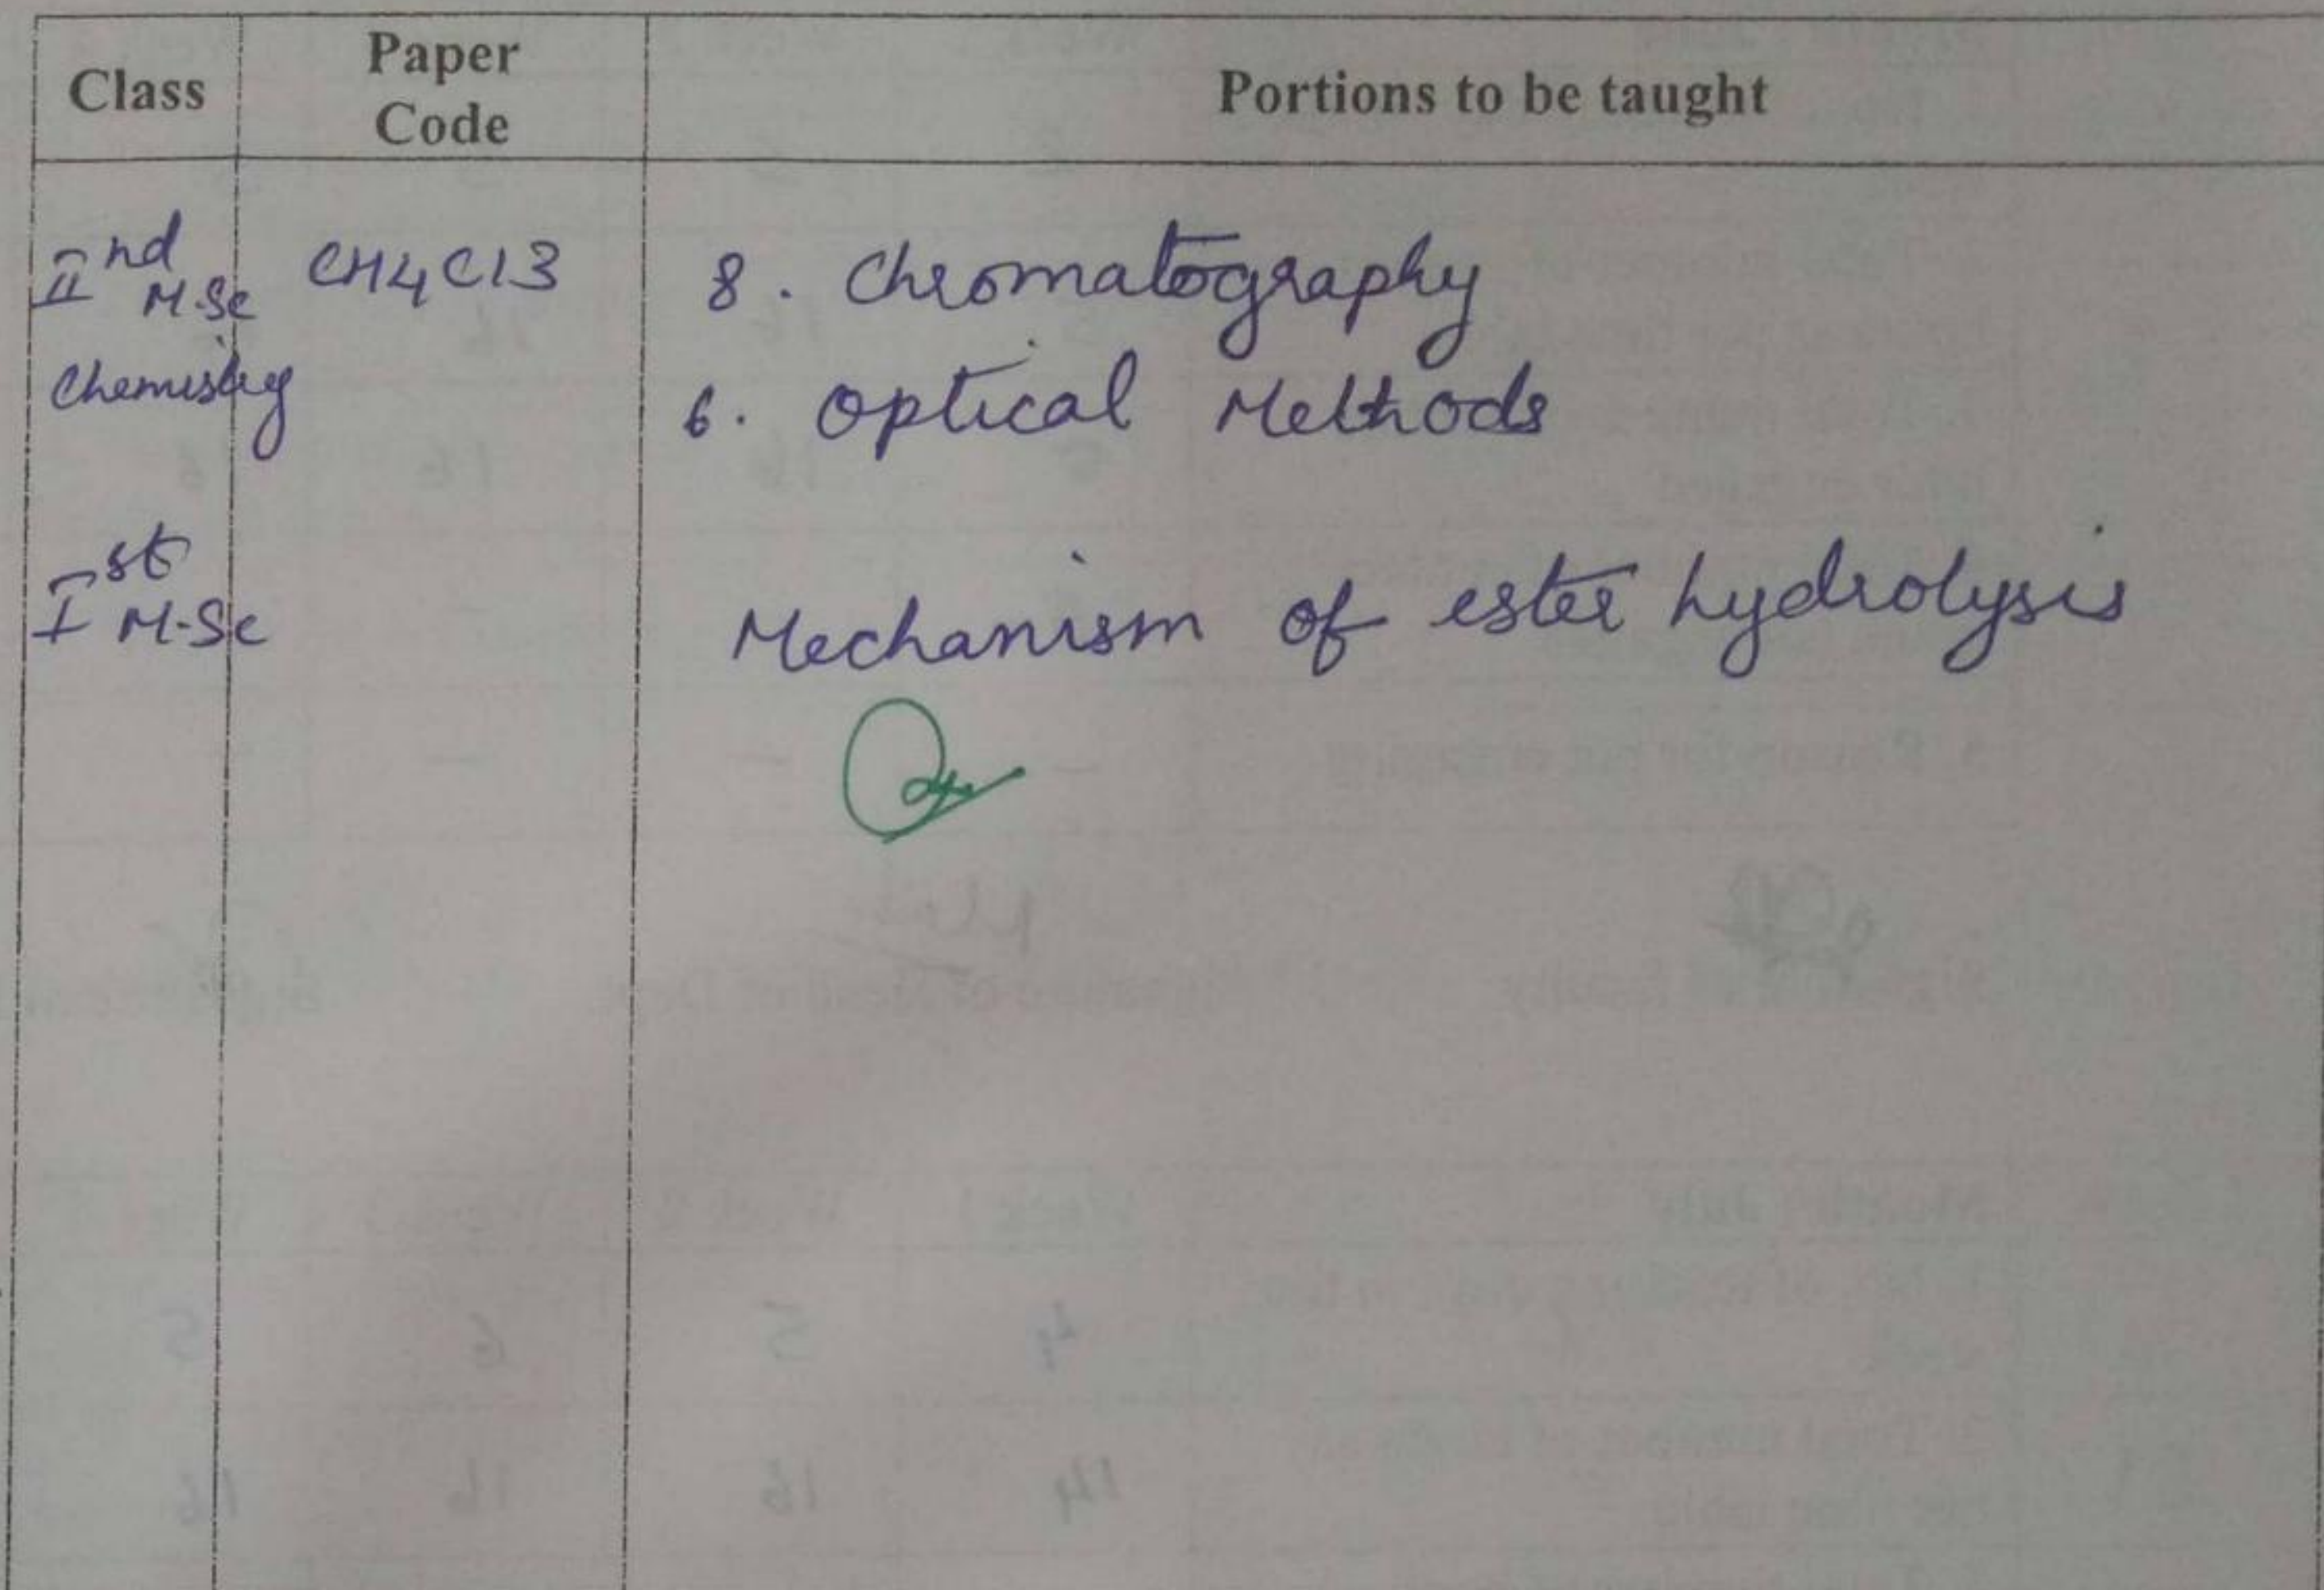 Class Paper Code Portions to be taught
IInd M.Sc CH4C13 8. Chromatography
Chemistry 6. Optical Methods
Ist M.Sc Mechanism of ester hydrolysis